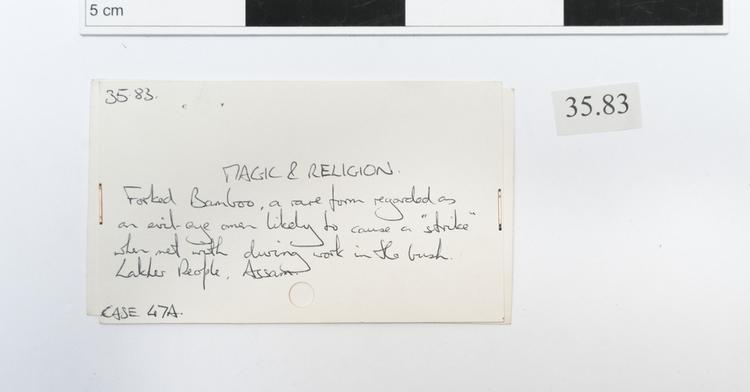 5 cm
35.83.
35.83
MAGIC & RELIGION.
Forked Bamboo, a rare form regarded as
an evil-eye omen likely to cause a "strike"
when met with during work in the bush.
Lakher People, Assam
CASE 47A.